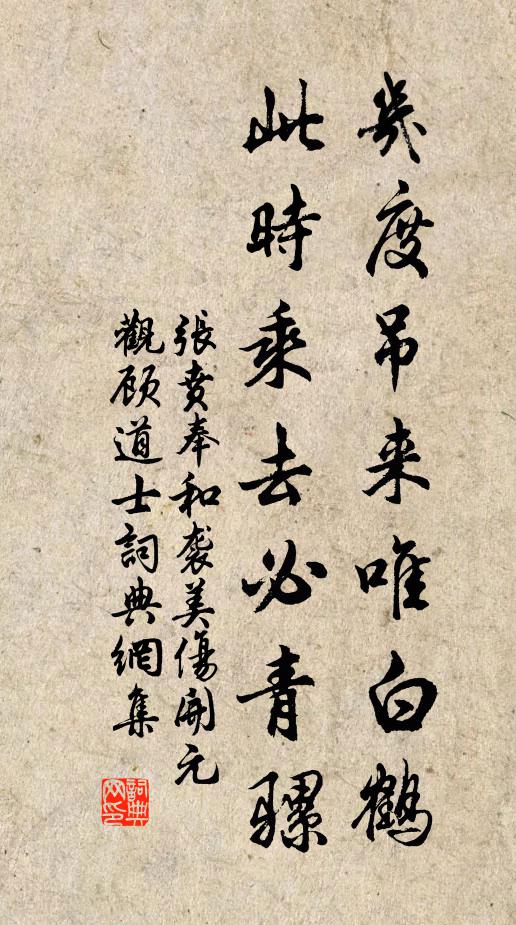 幾度吊来唯白鶴
此時乘去必青騾
張賁奉和袭美傷開元
觀顾道士詞典網集
詞典网印